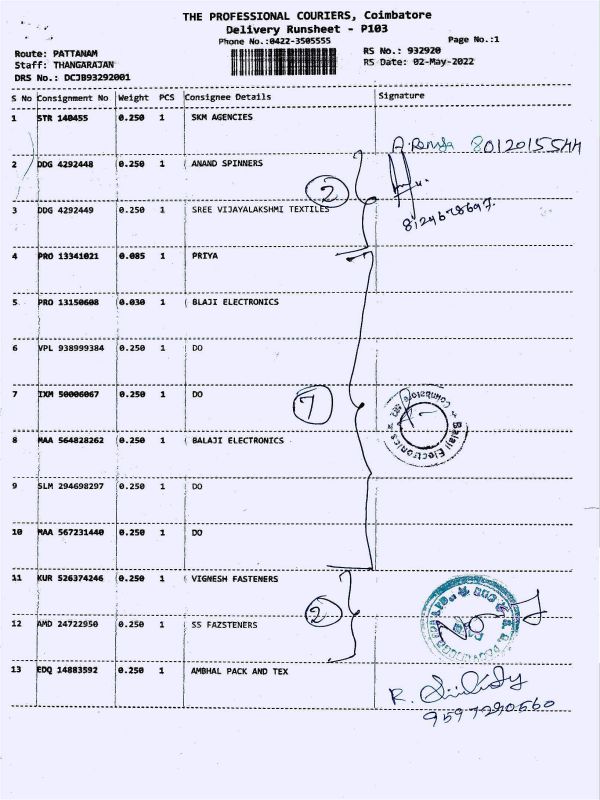 THE PROFESSIONAL COURIERS, Coimbatore
Delivery Runsheet - P103
Phone No.:0422-3505555
Page No.:1
Route: PATTANAM
RS No.: 932920
Staff: THANGARAJAN
RS Date: 02-May-2022
DRS No.: DCJB93292001
S No Consignment No Weight PCS Consignee Details Signature
1 STR 140455 0.250 1 SKM AGENCIES
8012015544
2 DDG 4292448 0.250 1 ANAND SPINNERS
2
3 DDG 4292449 0.250 1 SREE VIJAYALAKSHMI TEXTILES
4 PRO 13341021 0.085 1 PRIYA
5 PRO 13150608 0.030 1 BLAJI ELECTRONICS
6 VPL 938999384 0.250 1 DO
7 IXM 50006067 0.250 1 DO
7
Balaji Electronics
Coimbatore
8 MAA 564828262 0.250 1 BALAJI ELECTRONICS
9 SLM 294698297 0.250 1 DO
10 MAA 567231440 0.250 1 DO
11 KUR 526374246 0.250 1 VIGNESH FASTENERS
2
12 AMD 24722950 0.250 1 SS FAZSTENERS
13 EDQ 14883592 0.250 1 AMBHAL PACK AND TEX
R.
9597290560